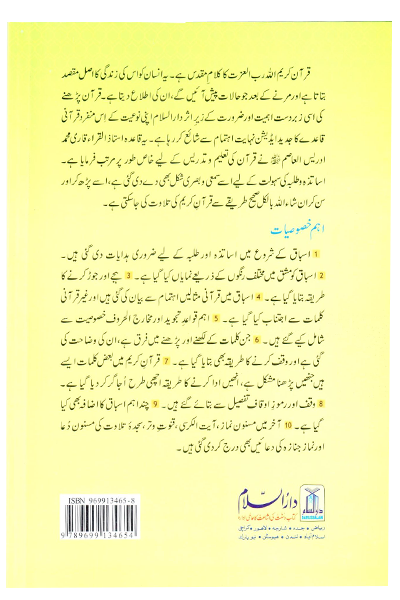 قرآن کریم اللہ رب العزت کا کلام مقدس ہے۔ یہ انسان کو اس کی زندگی کا اصل مقصد
بتاتا ہے اور مرنے کے بعد جو حالات پیش آئیں گے، ان کی اطلاع دیتا ہے۔ قرآن پڑھنے
کی اسی زبردست اہمیت اور ضرورت کے زیر اثر دارالسلام اپنی نوعیت کے اس منفرد قرآنی
قاعدے کا جدید ایڈیشن نہایت اہتمام سے شائع کر رہا ہے۔ یہ قاعدہ استاذ القراء قاری محمد
ادریس العاصم نے قرآن کی تعلیم و تدریس کے لیے خاص طور پر مرتب فرمایا ہے۔
اساتذہ و طلبہ کی سہولت کے لیے اسے سمعی و بصری شکل بھی دے دی گئی ہے، اسے پڑھ کر اور
سن کر ان شاء اللہ بالکل صحیح طریقے سے قرآن کریم کی تلاوت کی جا سکتی ہے۔
اہم خصوصیات
1 اسباق کے شروع میں اساتذہ اور طلبہ کے لیے ضروری ہدایات دی گئی ہیں۔
2 اسباق کو مشق میں مختلف رنگوں کے ذریعے نمایاں کیا گیا ہے۔ 3 ہجے اور جوڑ کرنے کا
طریقہ بتایا گیا ہے۔ 4 اسباق میں قرآنی مثالیں اہتمام سے بیان کی گئی ہیں اور غیر قرآنی
کلمات سے اجتناب کیا گیا ہے۔ 5 اہم قواعد تجوید اور مخارج الحروف خصوصیت سے
شامل کیے گئے ہیں۔ 6 جن کلمات کے لکھنے اور پڑھنے میں فرق ہے، ان کی وضاحت کی
گئی ہے اور وقف کرنے کا طریقہ بھی بتایا گیا ہے۔ 7 قرآن کریم میں بعض کلمات ایسے
ہیں جنھیں پڑھنا مشکل ہے، انھیں ادا کرنے کا طریقہ اچھی طرح اُجاگر کر دیا گیا ہے۔
8 وقف اور رموزِ اوقاف تفصیل سے بتائے گئے ہیں۔ 9 چند اہم اسباق کا اضافہ بھی کیا
گیا ہے۔ 10 آخر میں مسنون نماز، آیت الکرسی، قنوتِ وتر، سجدۂ تلاوت کی مسنون دُعا
اور نماز جنازہ کی دعائیں بھی درج کر دی گئی ہیں۔
ISBN 969913465-8
9 789699 134654
دارالسلام
کتاب و سنت کی اشاعت کا عالمی ادارہ
ریاض • جدہ • شارجہ • لاہور • کراچی
اسلام آباد • لندن • ہیوسٹن • نیویارک